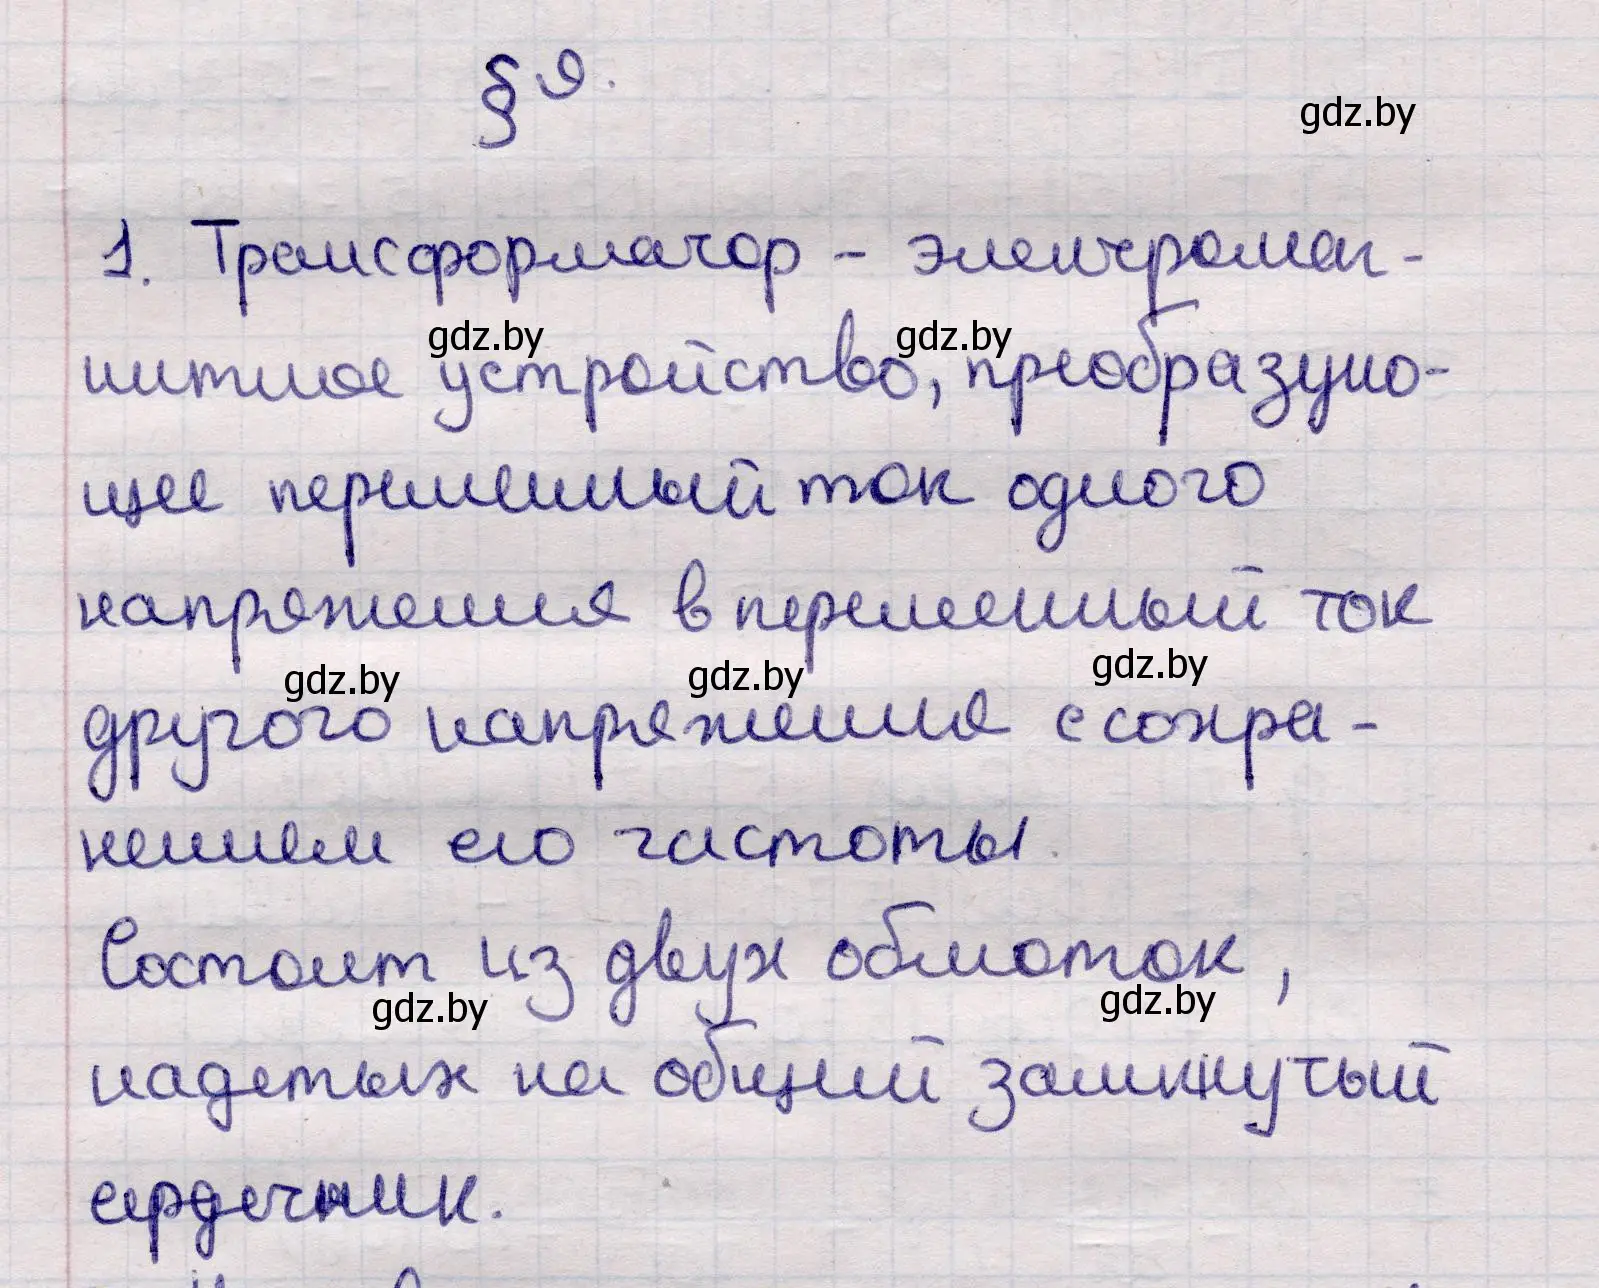 § 9.
gdz.by
1. Трансформатор - электромаг-
gdz.by gdz.by
нитное устройство, преобразую-
щее переменный ток одного
напряжения в переменный ток
gdz.by gdz.by gdz.by
другого напряжения с сохра-
нением его частоты.
Состоит из двух обмоток,
gdz.by gdz.by
надетых на общий замкнутый
сердечник.